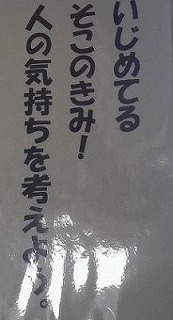 いじめてる
そこのきみ！
人の気持ちを考えよう。